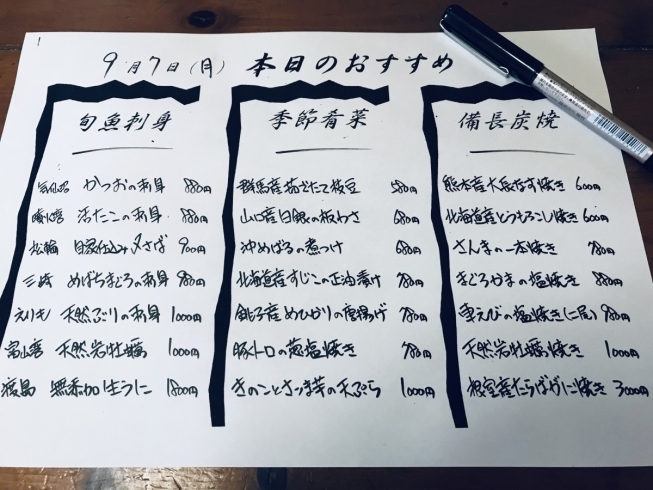 9月7日(月) 本日のおすすめ
旬魚刺身
気仙沼 かつおの刺身 880円
活たこの刺身 880円
松輪 自家仕込み〆さば 900円
三崎 めばちまぐろの刺身 980円
えりも 天然ぶりの刺身 1000円
富山湾 天然岩牡蠣 1000円
無添加生うに 1800円
季節肴菜
群馬産茹でたて枝豆 580円
山口産白銀の板わさ 680円
沖めばるの煮つけ 680円
北海道産すじこの正油漬け 780円
銚子産めひかりの唐揚げ 780円
豚トロの葱塩焼き 780円
きのことさつま芋の天ぷら 1000円
備長炭焼
熊本産大長なす焼き 600円
北海道産とうもろこし焼き 600円
さんまの一本焼き 780円
まぐろかまの塩焼き 880円
車えびの塩焼き(二尾) 980円
天然岩牡蠣焼き 1000円
根室産たらばがに焼き 3000円